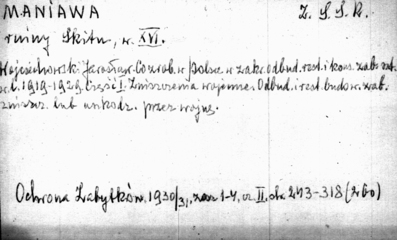 MANIAWA Z. S. S. R.
ruiny Skitu, w. XVI.
Wojciechowski Jarosław. Co zrob. w Polsce w zakr. odbud. rest. i kons. zab. szt.
w l. 1919-1929. Część I. Zniszczenia wojenne. Odbud. i rest. budow. zab.
zniszcz. lub uszkodz. przez wojnę.
Ochrona Zabytków. 1930/31, zesz 1-4, cz II, str 243-318 (260)